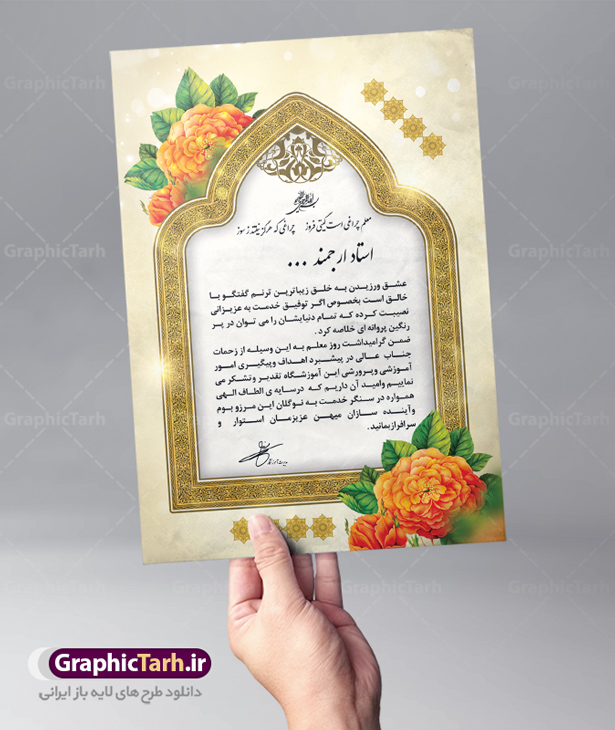 معلم چراغی است گیتی فروز چراغی که هرگز نیفتد ز سوز
استاد ارجمند ...
عشق ورزیدن به خلق زیباترین ترنم گفتگو با
خالق است بخصوص اگر توفیق خدمت به عزیزانی
نصیبت کرده که تمام دنیایشان را می توان در پر
رنگین پروانه ای خلاصه کرد.
ضمن گرامیداشت روز معلم به این وسیله از زحمات
جناب عالی در پیشبرد اهداف وپیگیری امور
آموزشی وپرورشی این آموزشگاه تقدیر و تشکر می
نماییم وامید آن داریم که درسایه ی الطاف الهی
همواره در سنگر خدمت به نوگلان این مرزو بوم
وآینده سازان میهن عزیزمان استوار و
سرافرازبمانید.
GraphicTarh.ir
دانلود طرح های لایه باز ایرانی
GraphicTarh
GraphicTarh
GraphicTarh
GraphicTarh